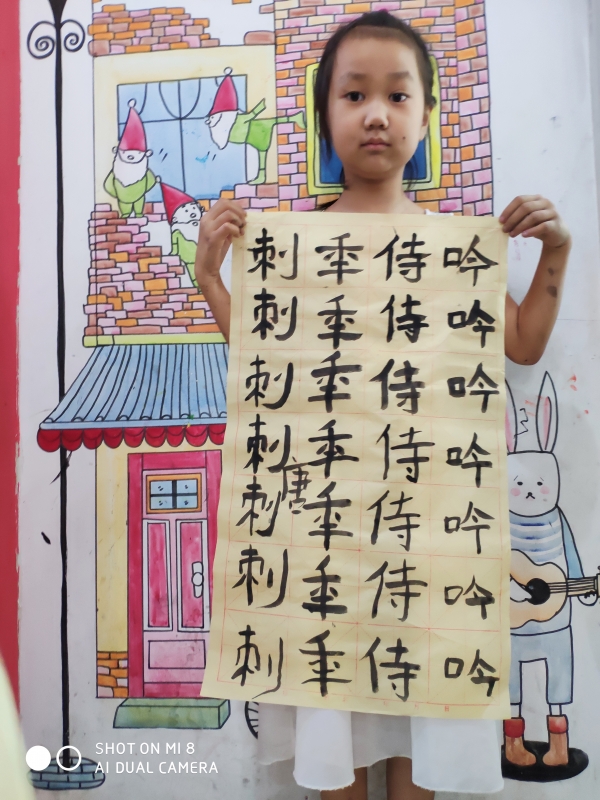 吟吟吟吟吟吟吟
侍侍侍侍侍侍侍
垂垂垂垂垂垂垂
刺刺刺刺刺刺刺
SHOT ON MI 8
AI DUAL CAMERA